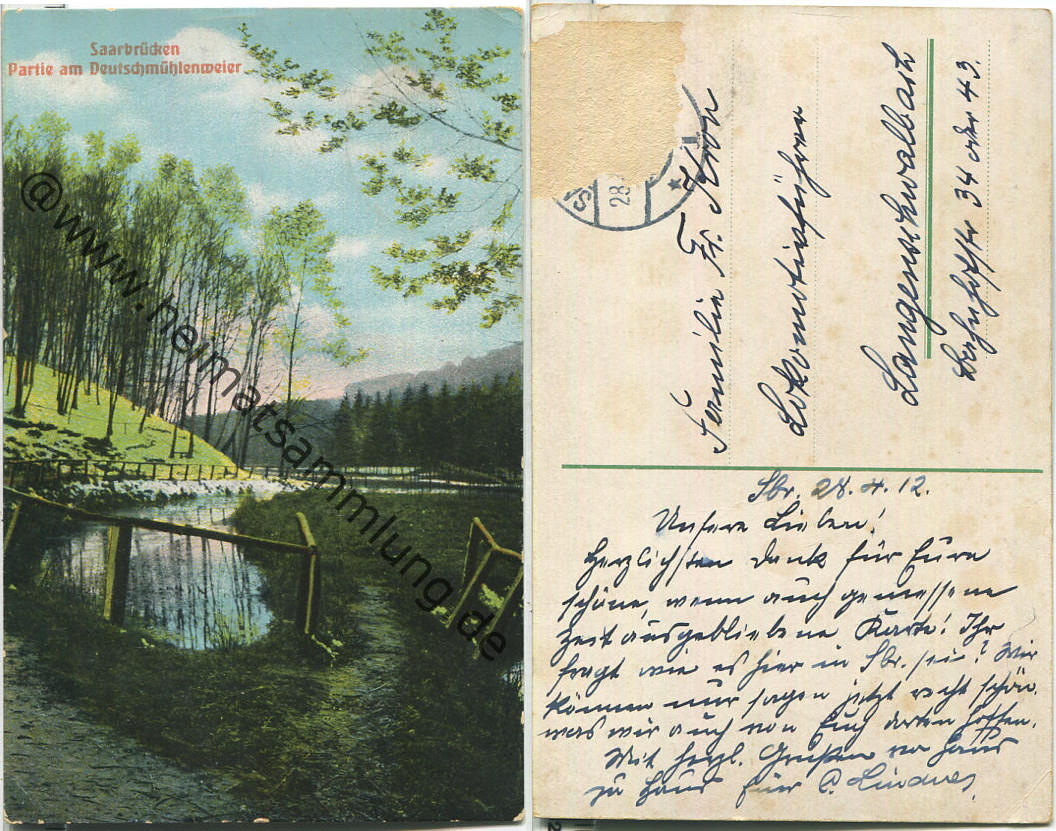 Saarbrücken
Partie am Deutschmühlenweier
@www.heimatsammlung.de
28
Familie Fr. Knapp
Lokomotivführer
Langenschwalbach
Bahnhofstr 34 oder 43.
Sbr. 28.4.12.
Unsere Lieben!
Herzlichsten Dank für Eure
schöne, wenn auch gemessene
Zeit ausgebliebene Karte! Ihr
fragt wie es hier in Sbr. sei? Wir
können nur sagen jetzt recht schön.
was wir auch von Euch dorten hoffen.
Mit herzl. Grüßen von Haus
zu Haus für C. Lindner